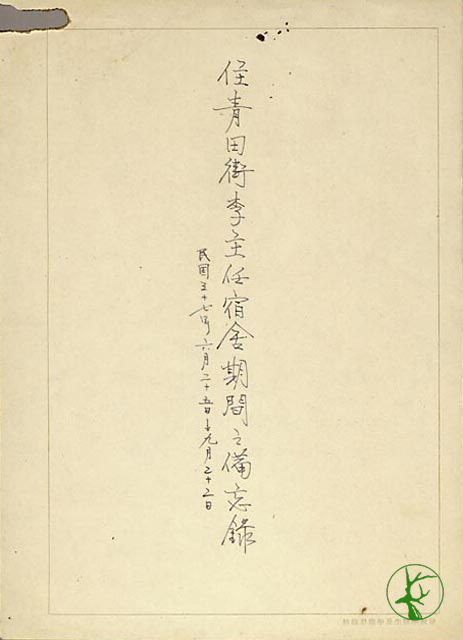 住青田街李主任宿舍期間之備忘錄
民国五十七年六月二十五日至九月二十二日